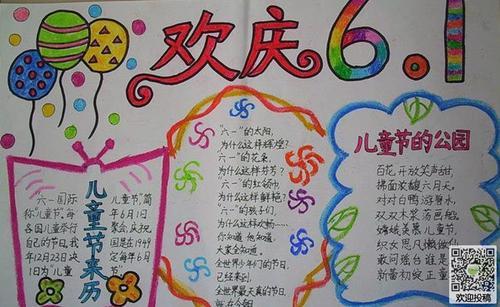 欢庆6.1
儿童节来历
六一国际
称"儿童节",每
各国儿童举行
自己的节日。我
年12月23日决
1日为"儿童
儿童节"简
年6月1日
聚会,庆祝
国是在1949
定每年6月
节"
"六一"的太阳,
为什么这样辉煌?
"六一"的花朵,
为什么这样芬芳?
"六一"的
为什么这样鲜艳?
"六一"的孩子们,
为什么这样欢畅…
你知道他知道,
大家全知道。
全世界今年们的节日,
已经来到,
全世界最天真的节日,
儿童节的公园
百花开放笑声甜,
拂面浓馥六月天。
对对白鸭游碧水,
双双木桨荡画船。
织女思凡懒
敢问瑶台谁是
新蕾初绽正童
欢迎投稿